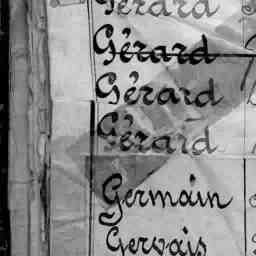 Gérard
Gérard
Gérard
Gérard
Germain
Gervais